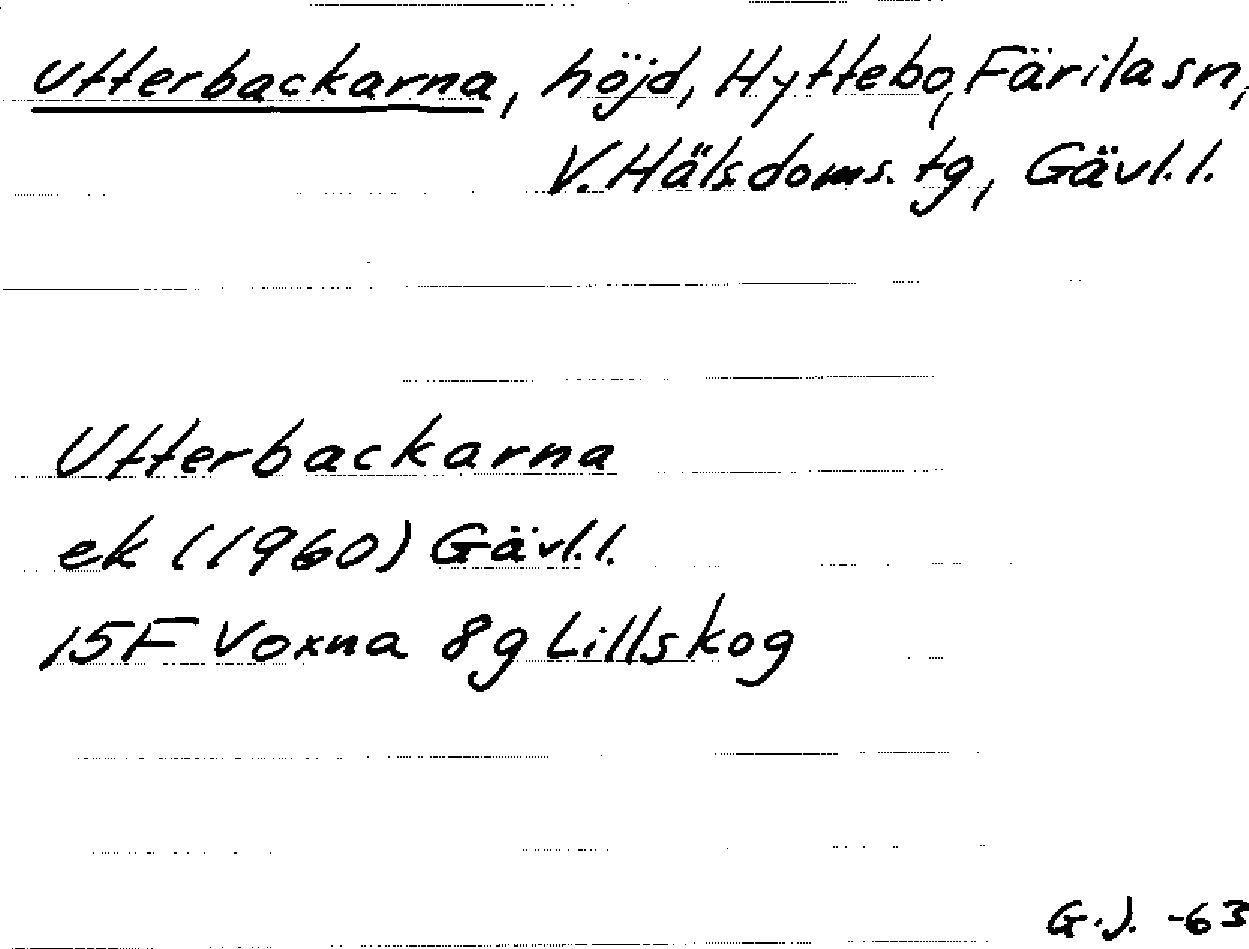 Utterbackarna, höjd, Hyttebo, Färila sn,
V. Häls. doms. tg, Gävl. l.
Utterbackarna
ek (1960) Gävl. l.
15F Voxna 8g Lillskog
G.J. -63